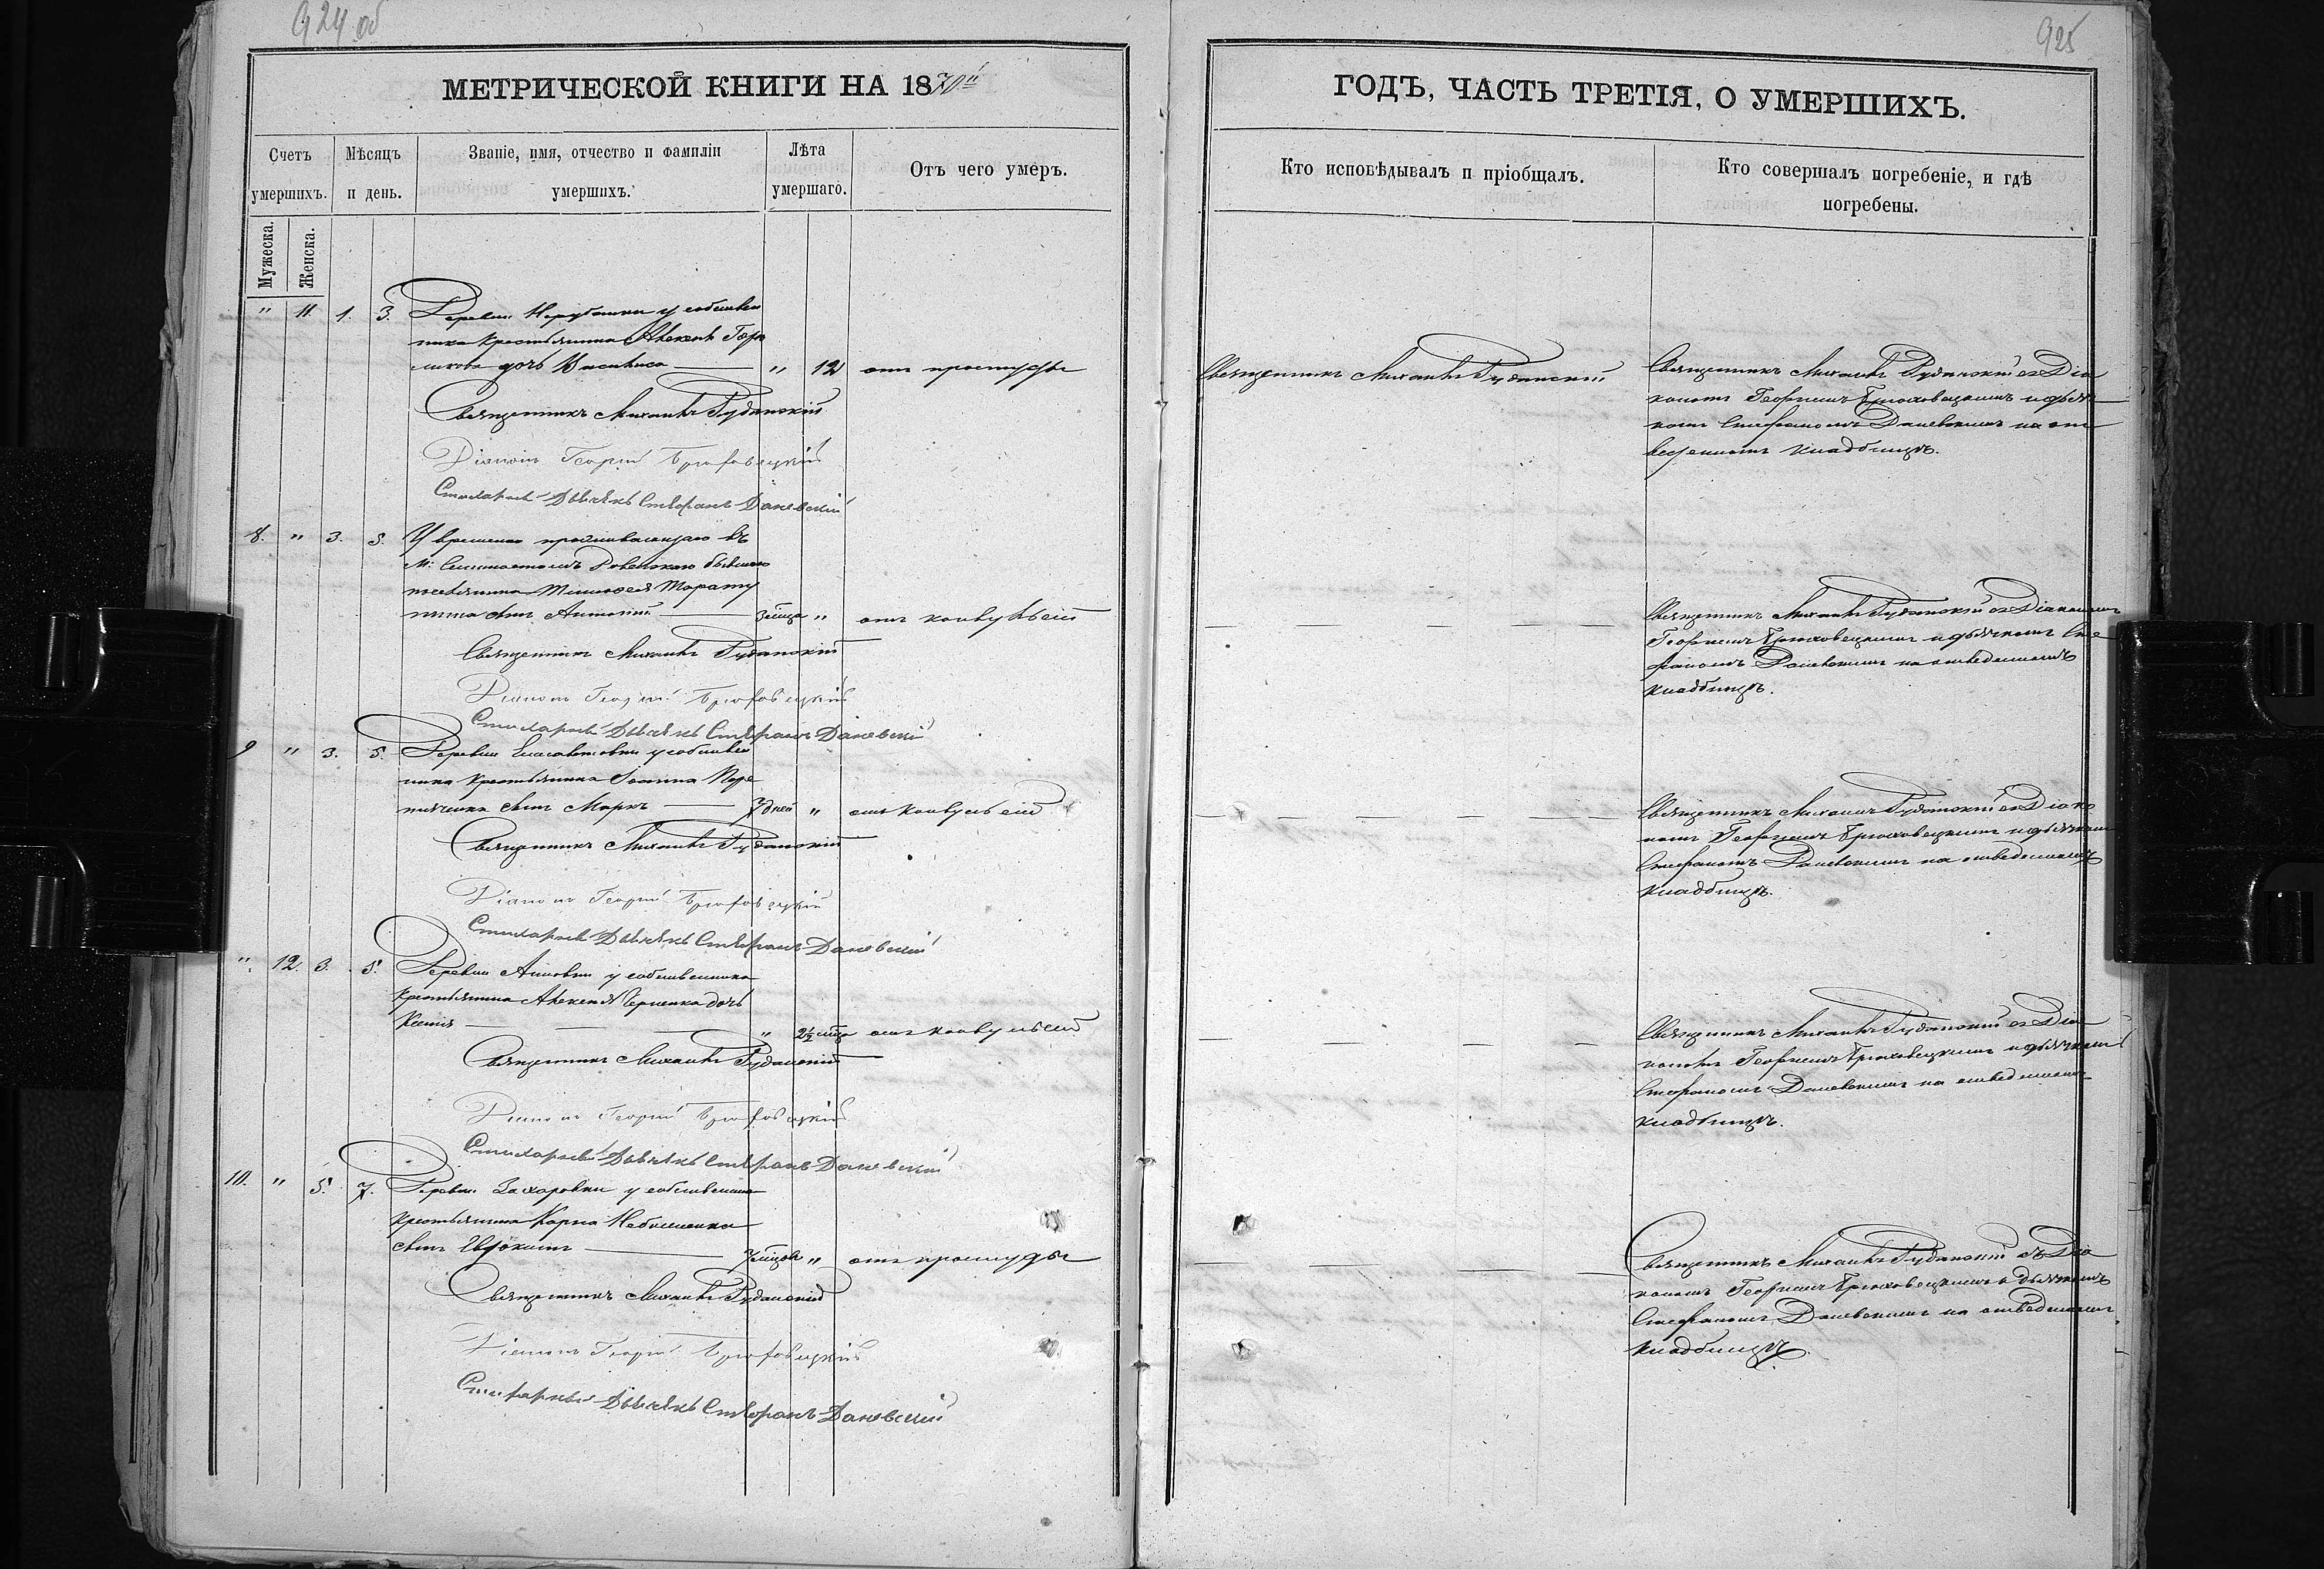 924 об
925
МЕТРИЧЕСКОЙ КНИГИ НА 1870й
ГОДЪ, ЧАСТЬ ТРЕТІЯ, О УМЕРШИХЪ.
Счетъ умершихъ.
Мужеска.
Женска.
Мѣсяцъ и день.
Званіе, имя, отчество и фамиліи умершихъ.
Лѣта умершаго.
Отъ чего умеръ.
Кто исповѣдывалъ и пріобщалъ.
Кто совершалъ погребеніе, и гдѣ погребены.
" 11. 1. 3. Деревни у собствен
ника крестьянина Алексѣя
дочь Васса " 12 отъ простуды
Священникъ Михаилъ Рудановскій
Діаконъ Георгій Брюховецкій
Стихарный Дьячекъ Стефанъ Даневскій
Священникъ Михаилъ Рудановскій
Священникъ Михаилъ Рудановскій съ Діа
кономъ Георгіемъ Брюховецкимъ и дьяч
комъ Стефаномъ Даневскимъ на от
веденномъ кладбищѣ.
8. " 3. 5. У временно проживающаго въ
М: бывшаго
поселянина Тимофея
сынъ Антоній 3 мѣсяца " отъ конвульсій
Священникъ Михаилъ Рудановскій
Діаконъ Георгій Брюховецкій
Стихарный Дьячекъ Стефанъ Даневскій
Священникъ Михаилъ Рудановскій съ Діакономъ
Георгіемъ Брюховецкимъ и дьячкомъ Сте
фаномъ Даневскимъ на отведенномъ
кладбищѣ.
9 " 3. 5. Деревни Елисаветовки у собствен
ника крестьянина Іоанна
сынъ Маркъ 7 дней " отъ конвульсій
Священникъ Михаилъ Рудановскій
Діаконъ Георгій Брюховецкій
Стихарный Дьячекъ Стефанъ Даневскій
Священникъ Михаилъ Рудановскій съ Діако
номъ Георгіемъ Брюховецкимъ и дьячкомъ
Стефаномъ Даневскимъ на отведенномъ
кладбищѣ.
" 12. 3. 5. Деревни Анновки у собственника
крестьянина Алексѣя дочь
Ксенія " 2½ мѣсяца отъ конвульсій
Священникъ Михаилъ Рудановскій
Діаконъ Георгій Брюховецкій
Стихарный Дьячекъ Стефанъ Даневскій
Священникъ Михаилъ Рудановскій съ Діа
кономъ Георгіемъ Брюховецкимъ и дьячкомъ
Стефаномъ Даневскимъ на отведенномъ
кладбищѣ.
10. " 5. 7. Деревни Захаровки у собственника
крестьянина Карпа
сынъ Евдокимъ " отъ простуды
Священникъ Михаилъ Рудановскій
Діаконъ Георгій Брюховецкій
Стихарный Дьячекъ Стефанъ Даневскій
Священникъ Михаилъ Рудановскій съ Діа
кономъ Георгіемъ Брюховецкимъ и дьячкомъ
Стефаномъ Даневскимъ на отведенномъ
кладбищѣ.